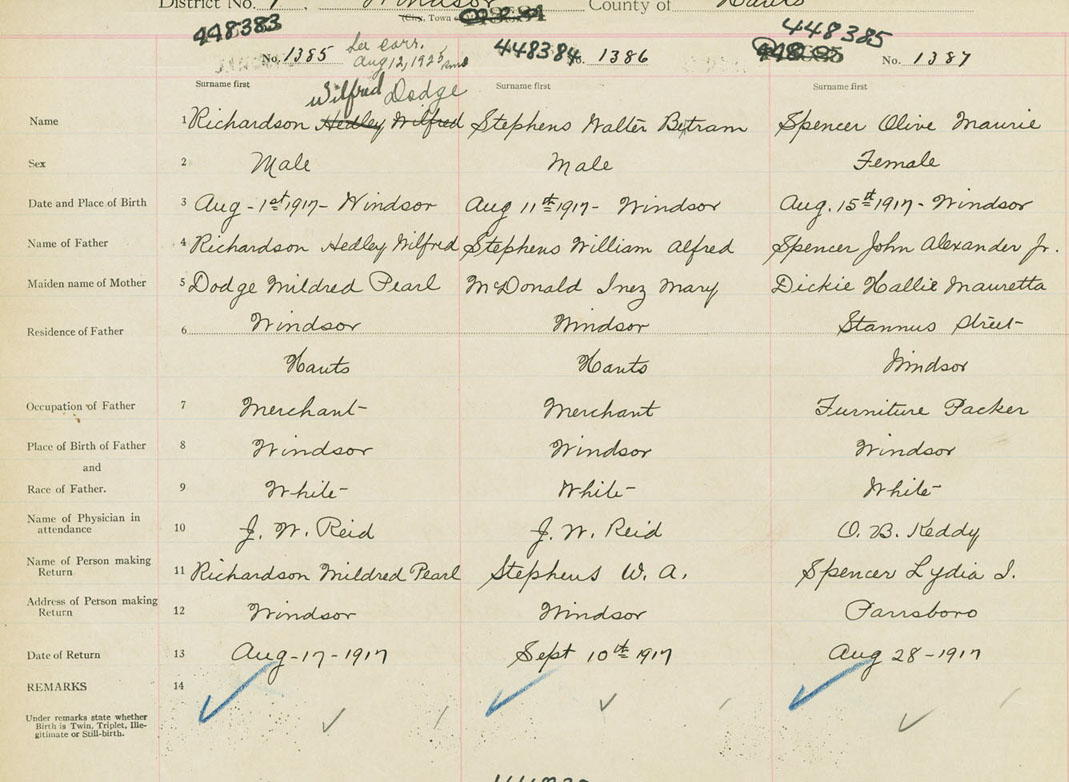 District No. 1 Windsor County of Hants
(City, Town
448383 448384 448385
No. 1385 See corr. Aug 12, 1925 No. 1386 No. 1387
Surname first Surname first Surname first
Wilfred Dodge
Name 1 Richardson Hedley Wilfred Stephens Walter Betram Spencer Olive Maurie
Sex 2 Male Male Female
Date and Place of Birth 3 Aug - 1st 1917 - Windsor Aug 11th 1917 - Windsor Aug. 15th 1917 - Windsor
Name of Father 4 Richardson Hedley Wilfred Stephens William Alfred Spencer John Alexander Jr.
Maiden name of Mother 5 Dodge Mildred Pearl McDonald Inez Mary Dickie Hallie Mauretta
Residence of Father 6 Windsor Windsor Stannus Street
Hants Hants Windsor
Occupation of Father 7 Merchant Merchant Furniture Packer
Place of Birth of Father 8 Windsor Windsor Windsor
and
Race of Father. 9 White White White
Name of Physician in
attendance 10 J. W. Reid J. W. Reid O. B. Keddy
Name of Person making
Return 11 Richardson Mildred Pearl Stephens W. A. Spencer Lydia I.
Address of Person making
Return 12 Windsor Windsor Parrsboro
Date of Return 13 Aug - 17 - 1917 Sept 10th 1917 Aug 28 - 1917
REMARKS 14
Under remarks state whether
Birth is Twin, Triplet, Ille-
gitimate or Still-birth.